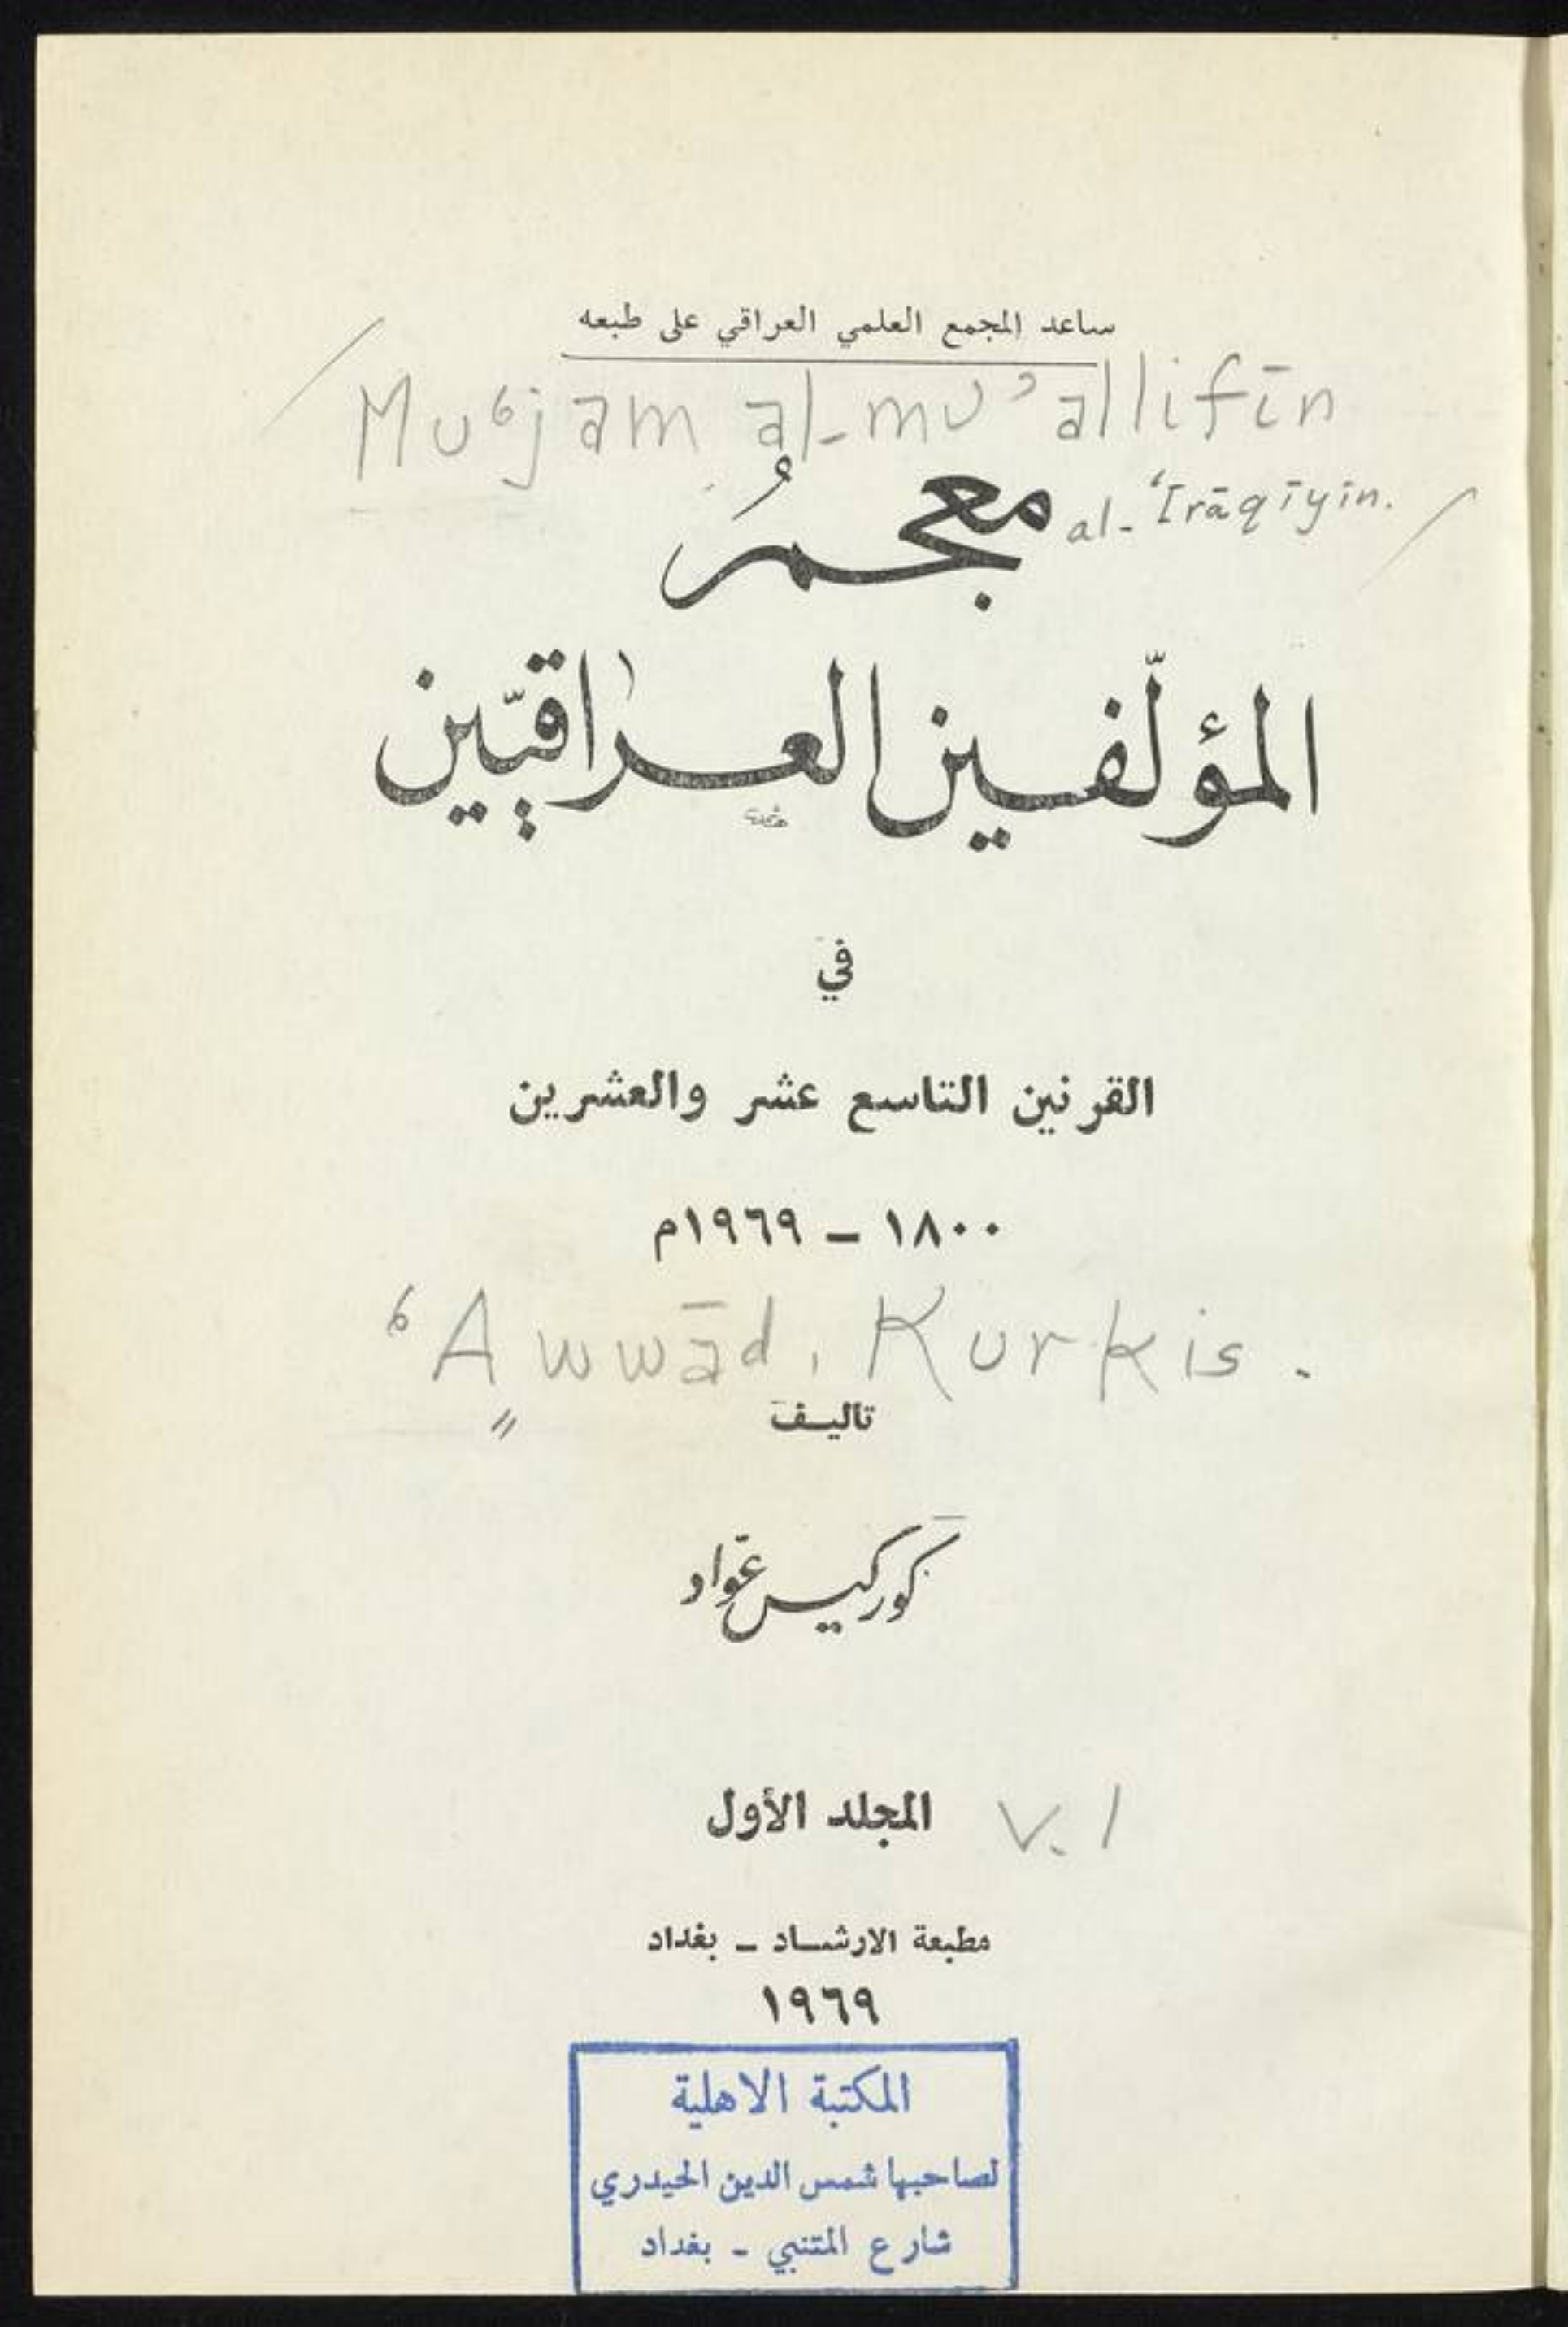 ساعد المجمع العلمي العراقي على طبعه
Muʿjam al-muʾallifīn
al-ʿIrāqīyīn.
معجمُ
المؤلّفين العراقيّين
في
القرنين التاسع عشر والعشرين
١٨٠٠ - ١٩٦٩م
ʿAwwād, Kurkis.
تاليف
كوركيس عوّاد
المجلد الأول
v. 1
مطبعة الارشاد - بغداد
١٩٦٩
المكتبة الاهلية
لصاحبها شمس الدين الحيدري
شارع المتنبي - بغداد